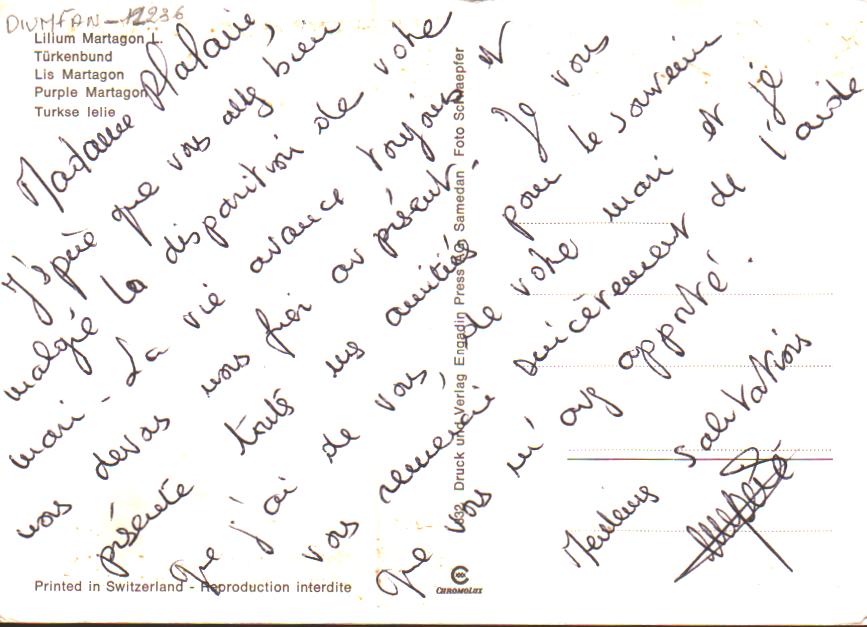 DIUMFAN-12236
Lilium Martagon L.
Türkenbund
Lis Martagon
Purple Martagon
Turkse lelie
Madame
J'spère que vous allez bien
malgré la disparition de votre
mari - La vie avance toujours et
nous devons nous fier au présent - Je vous
présente toute mes amitiés pour le souvenir
que j'ai de vous, de votre mari et je
vous remercie sincèrement de l'aide
que vous m'avez apporté.
Meilleurs salutations
Druck und Verlag Engadin Press AG, Samedan · Foto
Printed in Switzerland - Reproduction interdite
CHROMOLUX